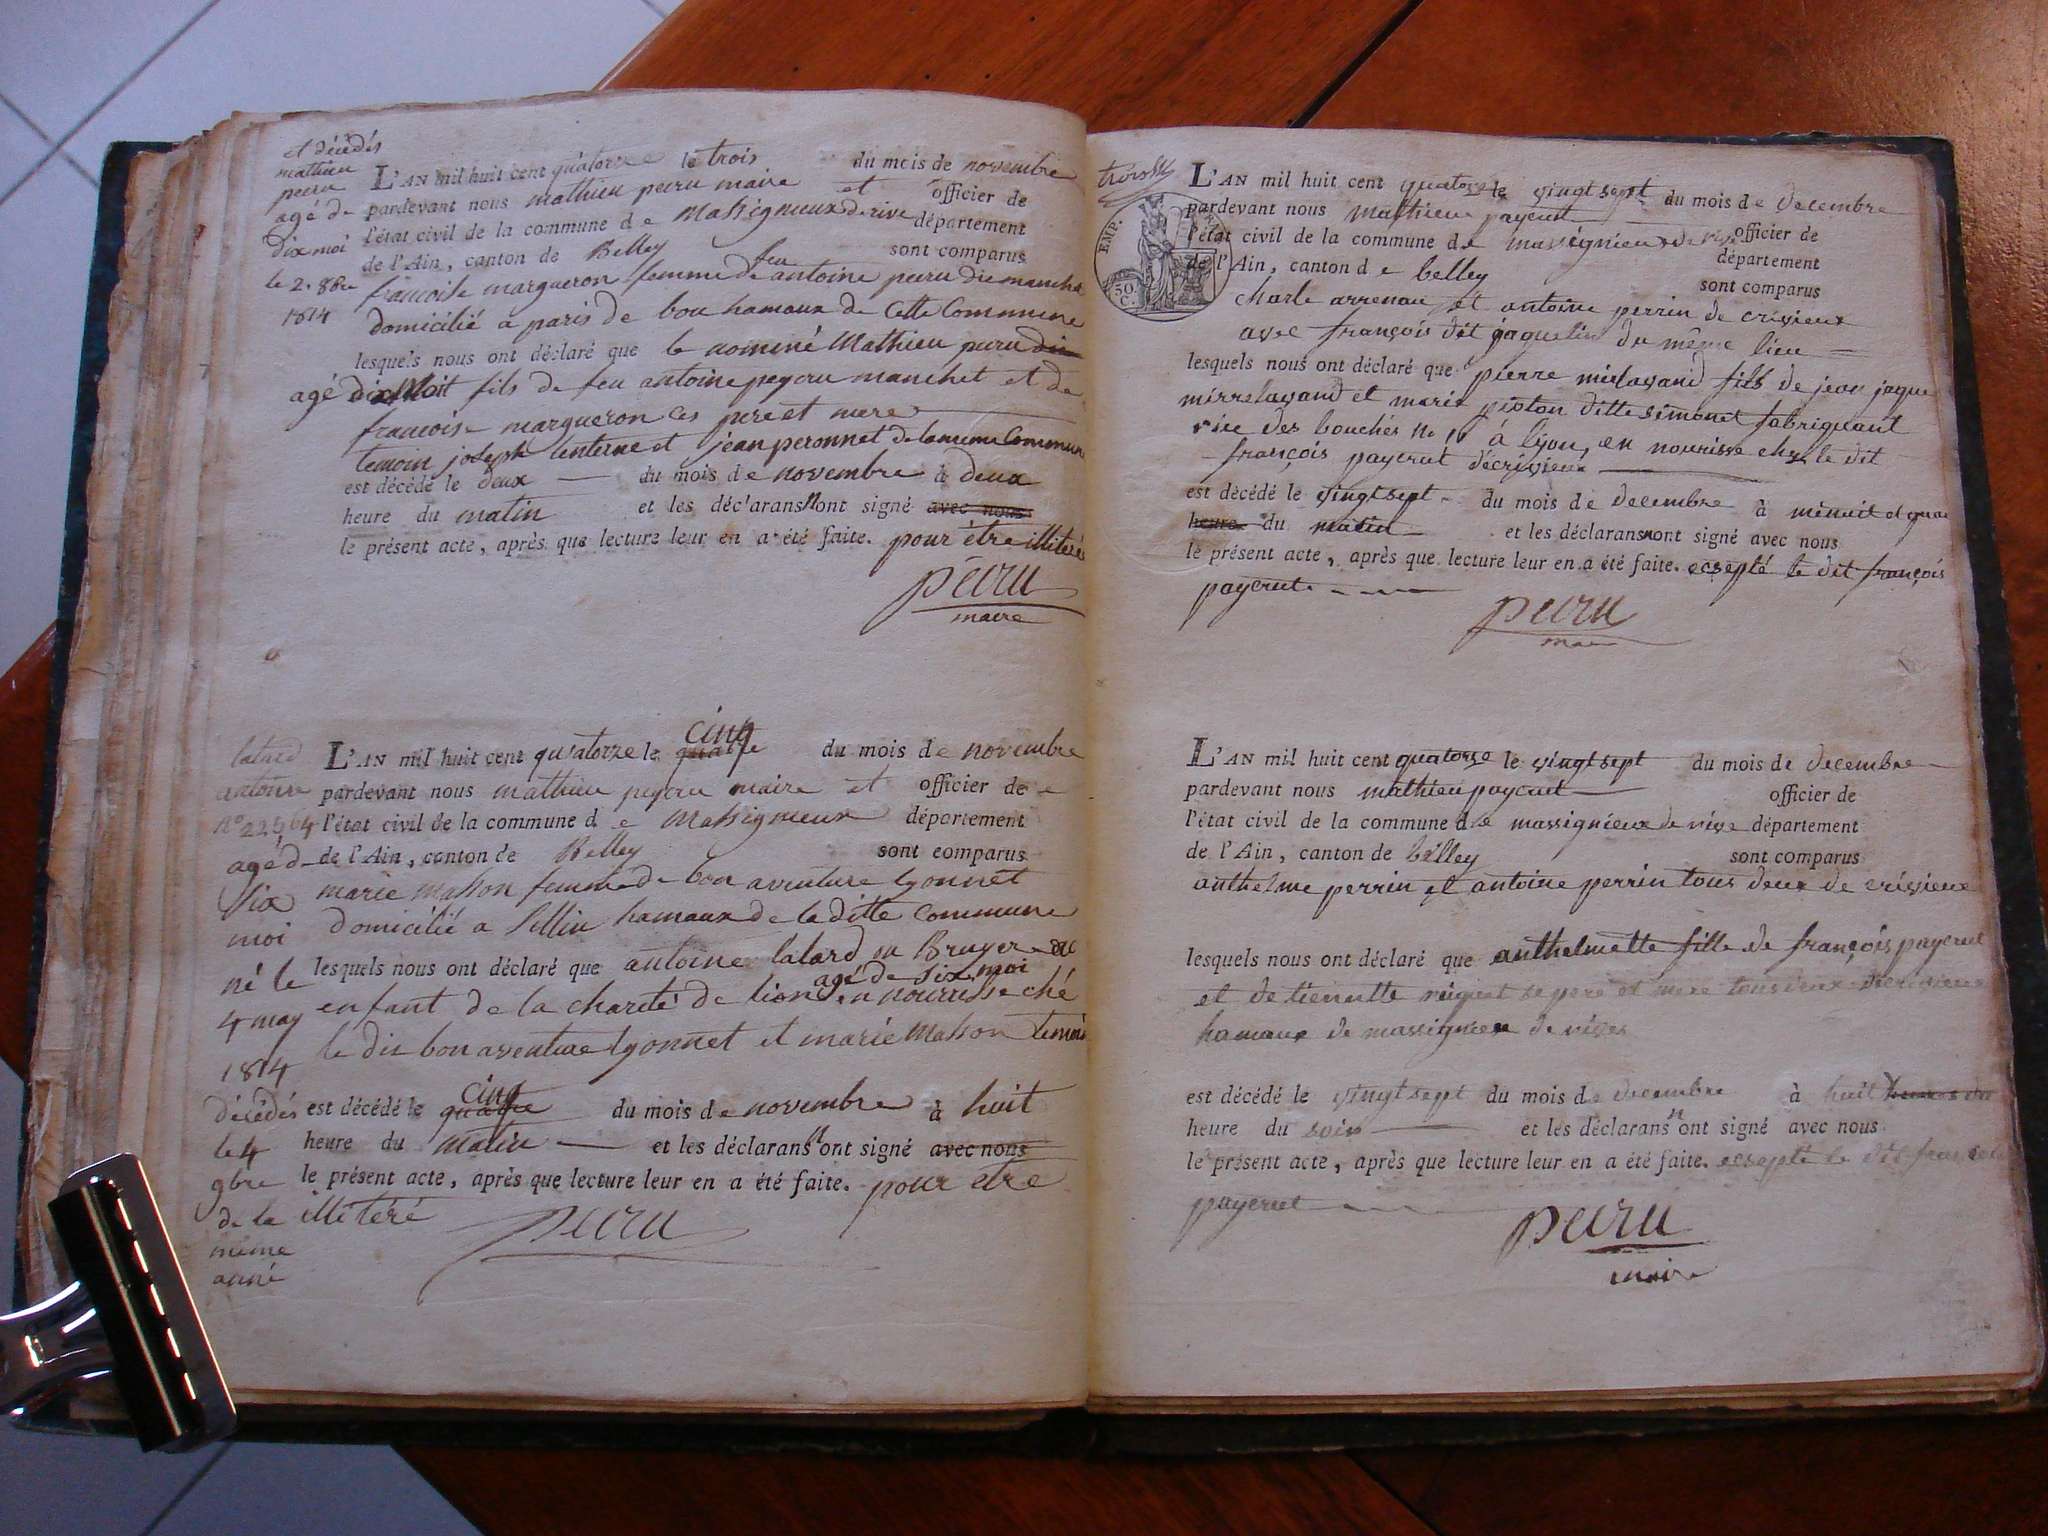 et décédés
mathieu
pecru
agé de
dix moi
le 2. 8bre
1814
L'AN mil huit cent quatorze le trois du mois de novembre
pardevant nous mathieu pecru maire et officier de
l'état civil de la commune de Massignieux de rive département
de l'Ain, canton de Belley sont comparus
francoise margueron femme de feu antoine pecru dit manche
domicilié a paris de bou hamaux de Cette Commune
lesquels nous ont déclaré que le nominé Mathieu pecru
agé dix Moit fils de feu antoine peycru manchet et de
francoise margueron ces pere et mere
temoin joseph lenterne et jean peronnet de la meme Commune
est décédé le deux du mois de novembre à deux
heure du matin et les déclarans n'ont signé avec nous
le présent acte, après que lecture leur en a été faite. pour être illiteré
pecru
maire
latard
antoine
agé de
six
moi
né le
4 may
1814
décédés
le 4
9bre
de la
meme
anné
L'AN mil huit cent quatorze le quatre cinq du mois de novembre
pardevant nous mathieu peycru maire et officier de
l'état civil de la commune de Massignieux département
de l'Ain, canton de Belley sont comparus
marie Masson femme de bon aventure lyonnet
domicilié a Sellin hamaux de la ditte Commune
lesquels nous ont déclaré que antoine latard ou Bruyer
agé de six moi
enfant de la charité de lion en nourrisse ché
le dit bon aventure lyonnet et marie Masson temoin
est décédé le quatre cinq du mois de novembre à huit
heure du matin et les déclarans n'ont signé avec nous
le présent acte, après que lecture leur en a été faite. pour etre
illiteré
pecru
EMP.
50
C.
L'AN mil huit cent quatorze le vingt sept du mois de decembre
pardevant nous mathieu payerut officier de
l'état civil de la commune de massignieux de rive département
de l'Ain, canton de belley sont comparus
charle arrenau et antoine perrin de crisieux
avec françois dit jaquelin du même lieu
lesquels nous ont déclaré que pierre mirlavaud fils de jean jaque
mirrelavaud et marie pioton ditte simonet fabriquant
rue des bouchés à lyon, en nourisse chez le dit
françois payerut décrisieux
est décédé le vingt sept du mois de decembre à minuit et
heure du matin et les déclarans n'ont signé avec nous
le présent acte, après que lecture leur en a été faite. ecsepté le dit françois
payerut
pecru
maire
L'AN mil huit cent quatorze le vingt sept du mois de decembre
pardevant nous mathieu payerut officier de
l'état civil de la commune de massignieux de rive département
de l'Ain, canton de belley sont comparus
anthelme perrin et antoine perrin tous deux de crisieux
lesquels nous ont déclaré que anthelmette fille de françois payerut
et de tienette se pere et mere tous deux
hamaux de massignieu de rives
est décédé le vingt sept du mois de decembre à huit heures du
heure du soir et les déclarans n'ont signé avec nous
le présent acte, après que lecture leur en a été faite. ecsepté le dit françois
payerut
pecru
maire